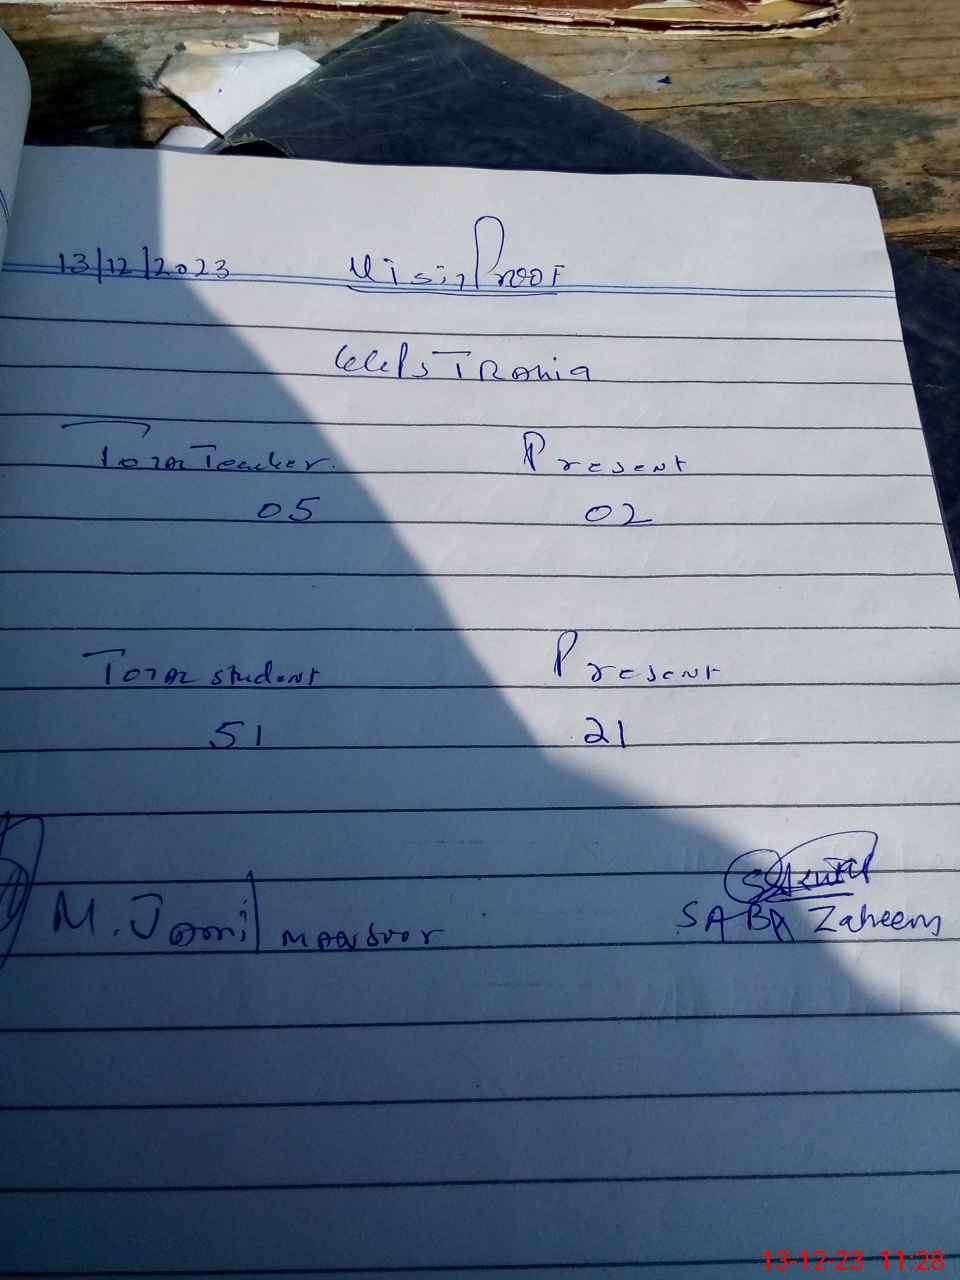 13/12/2023 Visit Proof
GGPS TRAHIA
Total Teacher Present
05 02
Total student Present
51 21
M. Jamil mansoor
SABA Zaheem
13-12-23 11:28